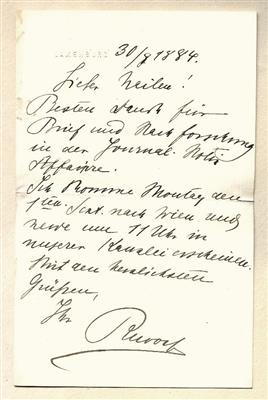 LAXENBURG 30/8 1884.
Lieber Weilen!
Besten Dank für
Brief und Nachforschung
in der Journal-Notiz
Affaire.
Ich komme Montag den
1ten. Sept. nach Wien und
werde um 11 Uhr in
unserer Kanzlei erscheinen.
Mit den herzlichsten
Grüßen,
Ihr
Rudolf